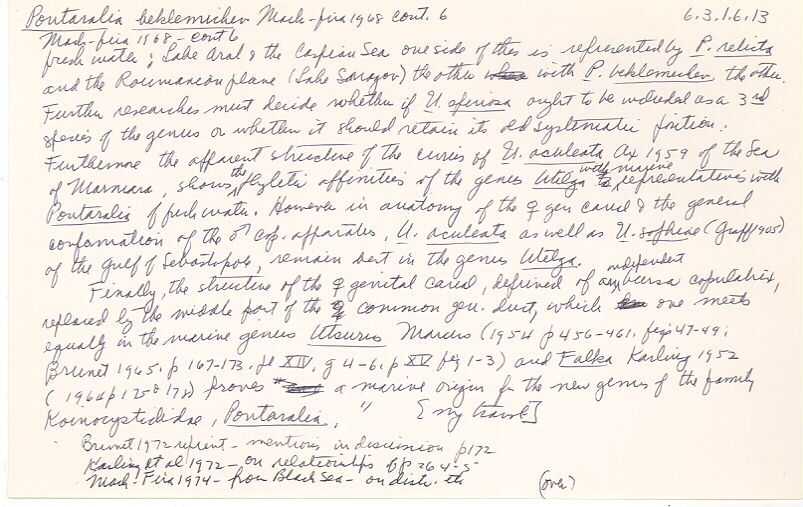 Pontaralia beklemichev Mack-fira 1968 cont. 6 6.3.1.6.13
Mack-fira 1968 - cont 6
fresh water; Lake Aral & the Caspian Sea one side of this is represented by P. relicta
and the Roumanian plane (Lake Sarazov) the other with P. beklemichev, the other.
Further researches must decide whether if U. oferiosa ought to be included as a 3rd
species of the genus or whether it should retain its old systematic position.
Furthermore the apparent structure of the cirrus of U. aculeata Ax 1959 of the Sea
of Marmara, shows the phyletic affinities of the genus Utelga with marine representatives with
Pontaralia of fresh water. However in anatomy of the ♀ gen canal & the general
conformation of the ♂ cop. apparatus, U. aculeata as well as U. sophiae (Graff 1905)
of the Gulf of Sebastopole, remain best in the genus Utelga.
Finally, the structure of the ♀ genital canal, deprived of an independent bursa copulatrix,
replaced by the middle part of the ♀ common gen. duct, which one meets
equally in the marine genus Utsurus Marcus (1954 p 456-461, figs 47-49;
Brunet 1965. p 167-173. pl XIV, g 4-6, p XV fig 1-3) and Falka Karling 1952
(1964 p 125 & 178) proves " a marine origin for the new genus of the family
Koinocystididae, Pontaralia, " [my transl]
Brunet 1972 reprint - mentions in discussion p 172
Karling et al 1972 - on relationships pp 264-5
Mack-Fira 1974 - from Black Sea - on distr. etc
(over)